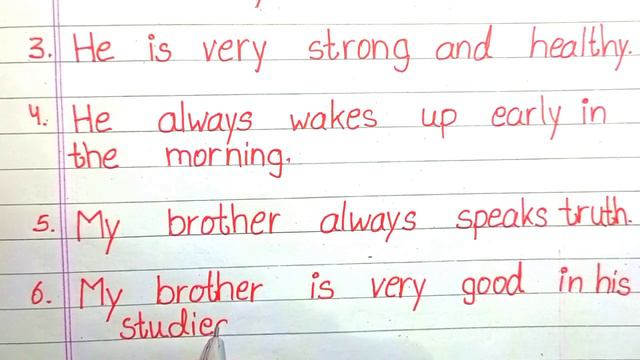 3. He is very strong and healthy.
4. He always wakes up early in
the morning.
5. My brother always speaks truth.
6. My brother is very good in his
studie